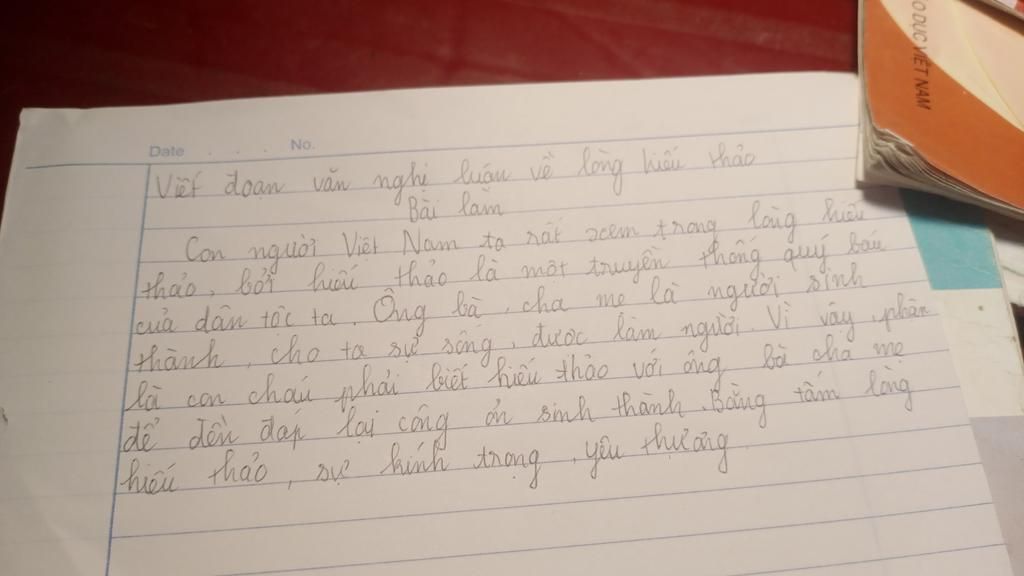 O DỤC VIỆT NAM
Date . . . No.
Viết đoạn văn nghị luận về lòng hiếu thảo
Bài làm
Con người Việt Nam ta rất xem trong lòng hiếu
thảo, bởi hiếu thảo là một truyền thống quý báu
của dân tôc ta. Ông bà, cha mẹ là người sinh
thành, cho ta sự sống, được làm người. Vì vây, phận
là con cháu phải biết hiếu thảo với ông bà cha mẹ
để đền đáp lại công ơn sinh thành. Bằng tấm lòng
hiếu thảo, sự kính trọng, yêu thương